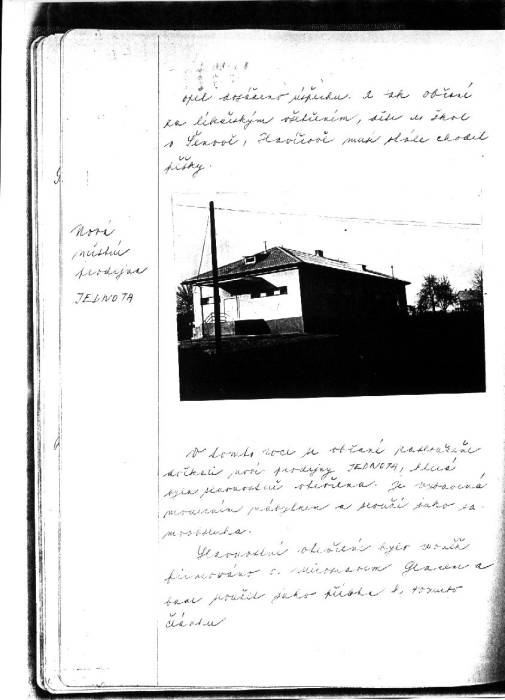 opět dosaženo úspěchu. A tak občané
za lékařským ošetřením, děti do škol
v Šenově, Havířově musí stále chodit
pěšky.
Nová
místní
prodejna
JEDNOTA
V tomto roce se občané
dočkali nové prodejny JEDNOTA, která
byla slavnostně otevřena. Je vybavena
moderním nábytkem a slouží jako sa-
moobsluha.
Slavnostní otevření bylo rovněž
filmováno s.
bude použit jako příloha k tomuto
článku